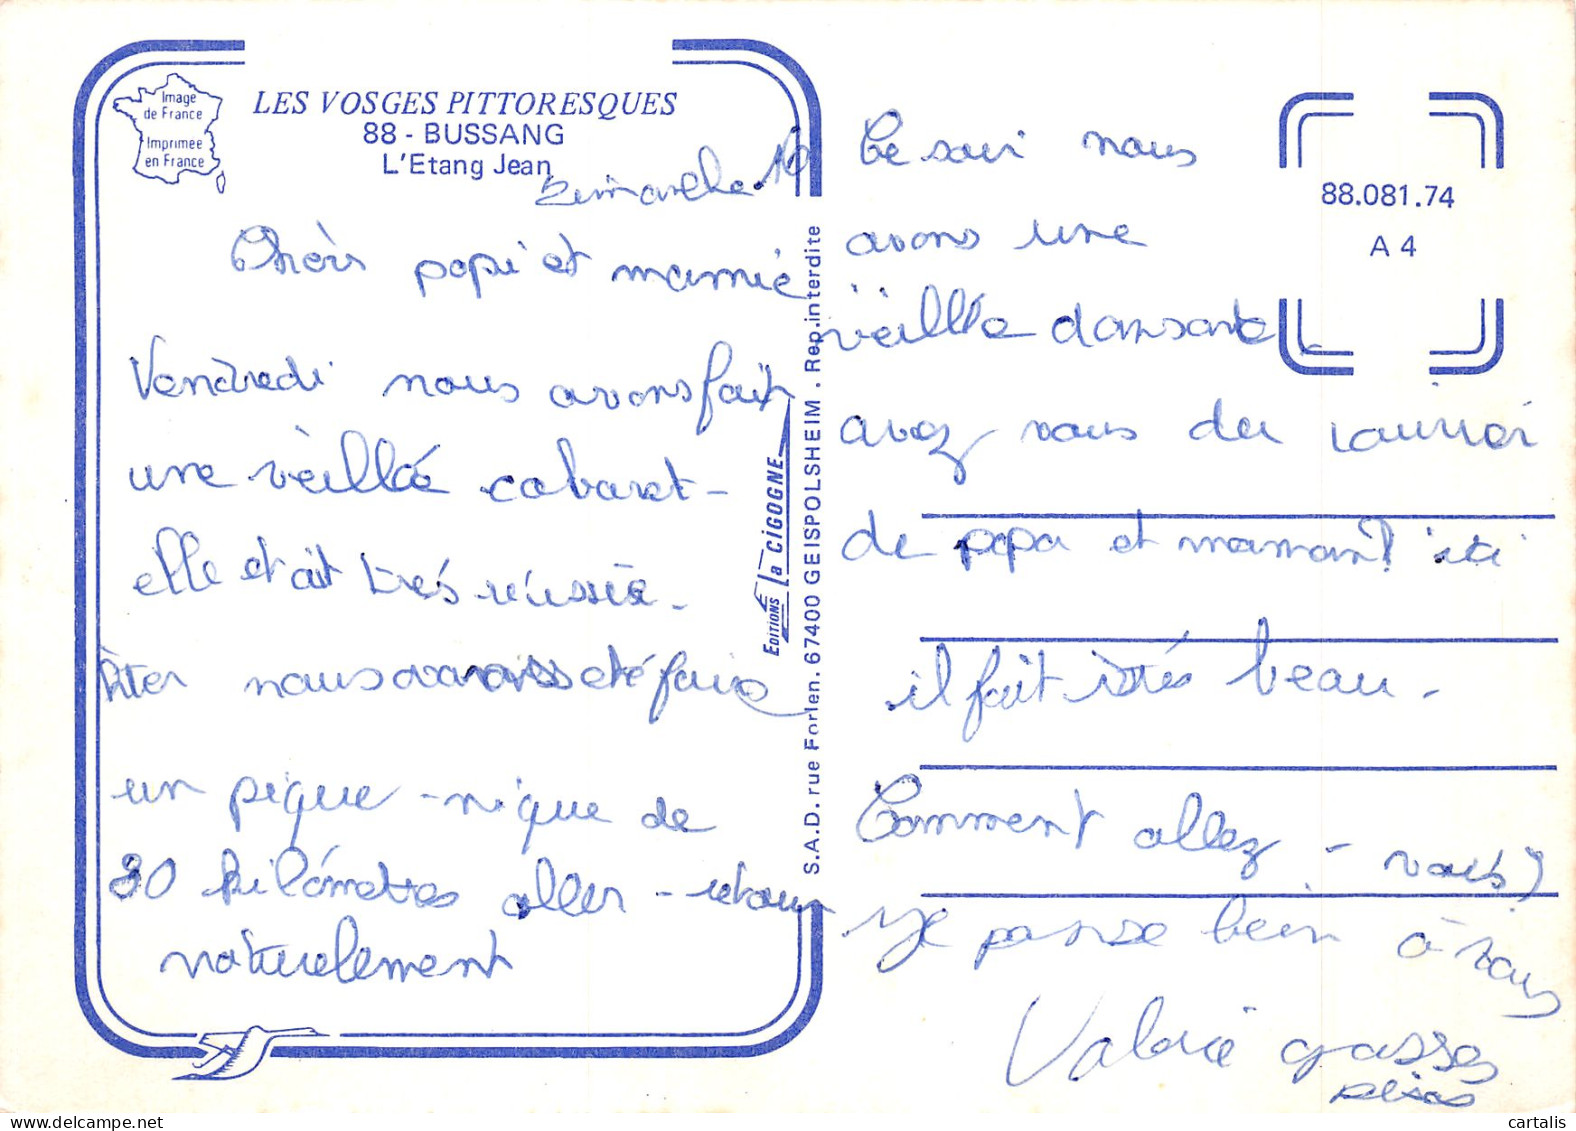 Image
de France
Imprimée
en France
LES VOSGES PITTORESQUES
88 - BUSSANG
L'Etang Jean
Dimanche 10
Chèrs papi et mamie
Vendredi nous avons fait
une vèillée cabaret -
elle etait trés réussie.
Hier nous avons eté faire
un pique-nique de
30 kilométres aller-retour
naturelement
EDITIONS la CIGOGNE
S.A.D. rue Forlen. 67400 GEISPOLSHEIM . Rep.interdite
Ce soir nous
avons une
veillée dansante.
avez vous du courrier
de papa et maman? ici
il fait trés beau.
Comment allez-vous?
Je pense bien à vous
Valérie grosses
bises
88.081.74
A 4
cartalis